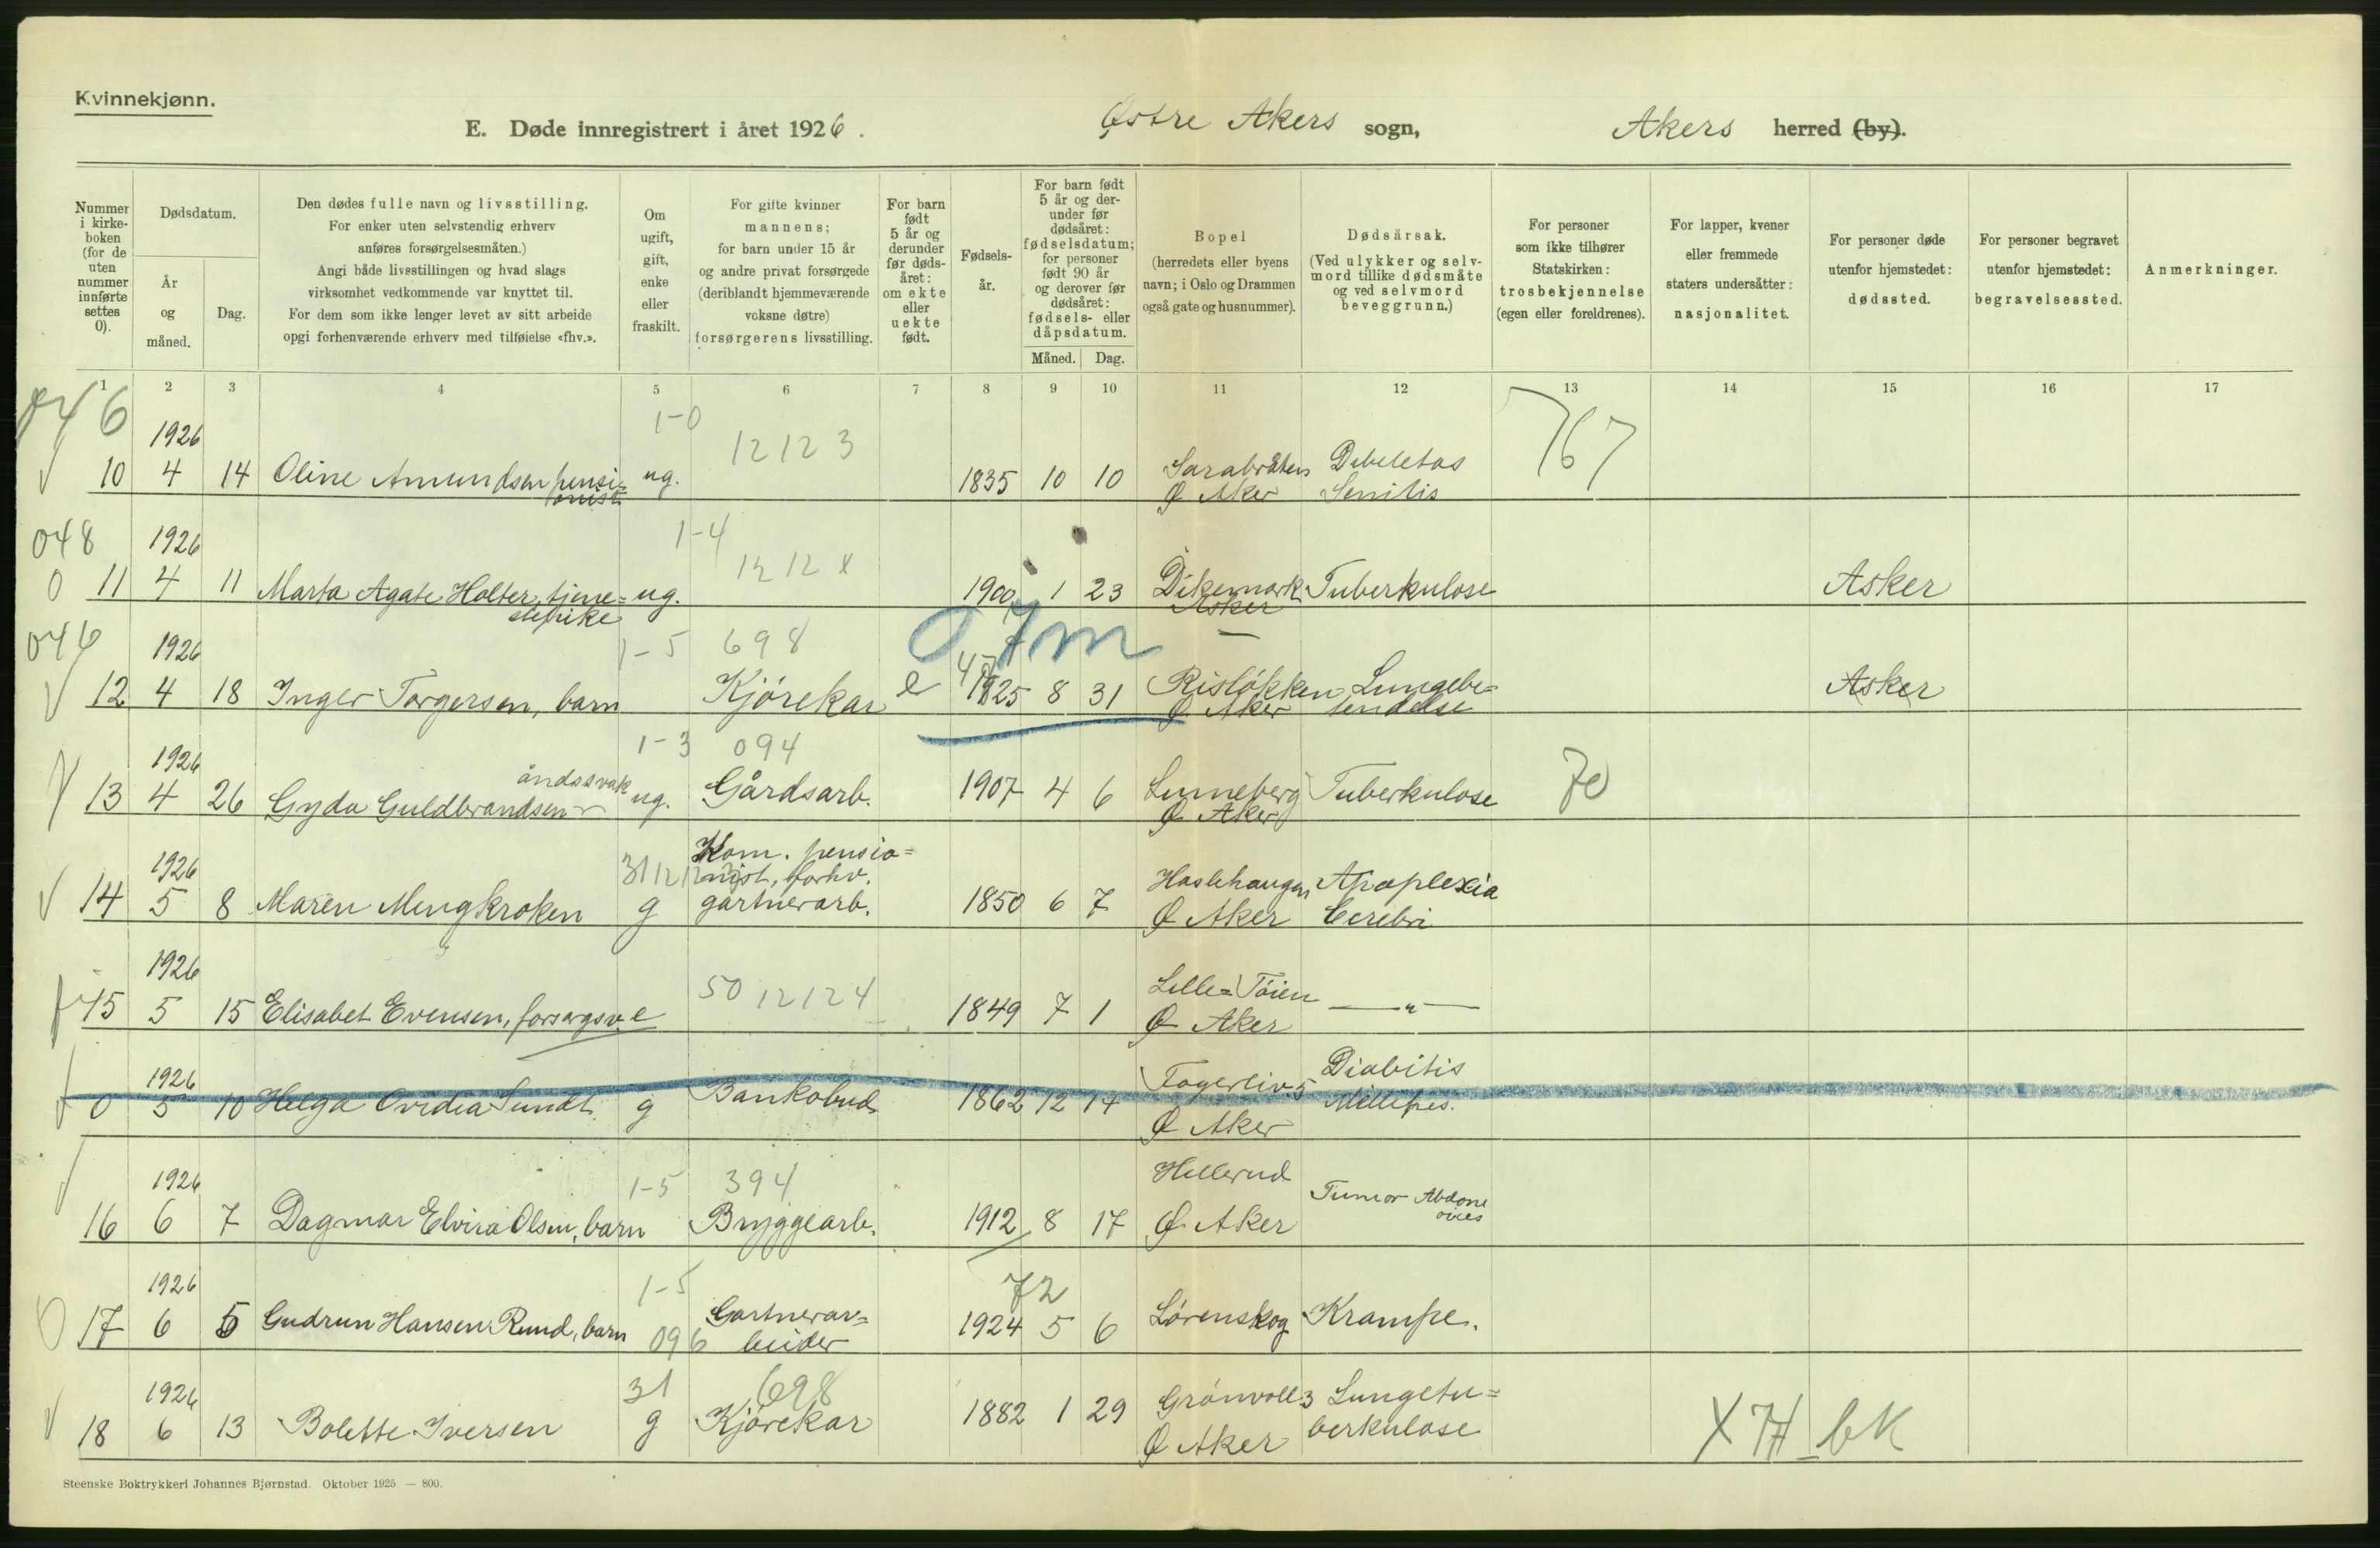 Kvinnekjønn.
E. Døde innregistrert i året 1926. Østre Akers sogn, Akers herred (by).
Nummer i kirke-boken (for de uten nummer innførte settes 0).
Dødsdatum.
År og måned.
Dag.
Den dødes fulle navn og livsstilling.
For enker uten selvstendig erhverv
anføres forsørgelsesmåten.)
Angi både livsstillingen og hvad slags
virksomhet vedkommende var knyttet til.
For dem som ikke lenger levet av sitt arbeide
opgi forhenværende erhverv med tilføielse «fhv.».
Om ugift, gift, enke eller fraskilt.
For gifte kvinner
mannens;
for barn under 15 år
og andre privat forsørgede
(deriblandt hjemmeværende
voksne døtre)
forsørgerens livsstilling.
For barn født 5 år og derunder før døds-året: om ekte eller uekte født.
Fødsels-år.
For barn født 5 år og der-under før dødsåret: fødselsdatum; for personer født 90 år og derover før dødsåret: fødsels- eller dåpsdatum.
Måned. Dag.
Bopel
(herredets eller byens
navn; i Oslo og Drammen
også gate og husnummer).
Dødsårsak.
(Ved ulykker og selv-
mord tillike dødsmåte
og ved selvmord
beveggrunn.)
For personer
som ikke tilhører
Statskirken:
trosbekjennelse
(egen eller foreldrenes).
For lapper, kvener
eller fremmede
staters undersåtter:
nasjonalitet.
For personer døde
utenfor hjemstedet:
dødssted.
For personer begravet
utenfor hjemstedet:
begravelsessted.
Anmerkninger.
1 2 3 4 5 6 7 8 9 10 11 12 13 14 15 16 17
046 1926 1-0 12123 767
10 4 14 Oline Amundsen pensi= ug. 1835 10 10 Sarabråten Debeletas
onist Ø Aker Senilis
048 1926 1-4 1212x
0 11 4 11 Marta Agate Holter, tjene= ug. 1900 1 23 Dikemark Tuberkulose Asker
stepike Asker
046 1926 1-5 698 07m
12 4 18 Inger Torgersen, barn Kjörekar e 1925 8 31 Risløkken Lungebe= Asker
Ø Aker tendelse
1926 1-3 094
13 4 26 Gyda Guldbrandsen åndssvak ug. Gårdsarb. 1907 4 6 Lunneberg Tuberkulose 70
Ø Aker
1926 Kom. pensio=
nist, forhv. Haslehaugen Apoplexia
14 5 8 Maren Mengkroken g gartnerarb. 1850 6 7 Ø Aker Cerebri
1926 50 12124 Lille=Töien
15 5 15 Elisabet Evensen, forsørgsv. e 1849 7 1 Ø Aker — " —
1926 Fagerliv. 5 Diabitis
0 5 10 Helga Ovidia Sundt g Bankobud 1862 12 14 Ø Aker Millepes.
1926 1-5 394 Hellerud
16 6 7 Dagmar Elvira Olsen, barn Bryggearb. 1912 8 17 Ø Aker Tumor Abdom
1926 1-5 72
0 17 6 5 Gudrun Hansen Rund, barn Gartnerar= 1924 5 6 Lörenskog Krampe.
096 beider
1926 31 698
18 6 13 Bolette Iversen g Kjörekar 1882 1 29 Grönvoll 3 Lungetu=
Ø Aker berkulose X 7H bK
Steenske Boktrykkeri Johannes Bjørnstad. Oktober 1925. — 800.